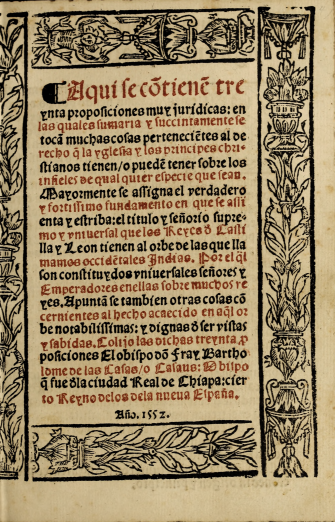 ¶Aqui se cõtienẽ tre
ynta proposiciones muy juridicas: en
las quales sumaria y succintamente se
tocã muchas cosas perteneciẽtes al de
recho q̃ la yglesia y los principes chris-
tianos tienen/o puedẽ tener sobre los
infieles de qual quier especie que sean.
Mayormente se assigna el verdadero
y fortissimo fundamento en que se assi
enta y estriba: el titulo y señorio supre-
mo y vniuersal que los Reyes ð Casti
lla y Leon tienen al orbe de las que lla
mamos occidẽtales Indias. Por el q̃l
son constituydos vniuersales señores y
Emperadores en ellas sobre muchos re
yes. Apuntã se tambien otras cosas cõ
cernientes al hecho acaecido en aq̃l or
be notabilissimas: y dignas ð ser vistas
y sabidas. Colijo las dichas treynta p
posiciones El obispo dõ Fray Bartho
lome de las Casas/o Casaus: Obispo
q̃ fue ðla ciudad Real de Chiapa: cier
to Reyno delos de la nueua España.
Año. 1552.